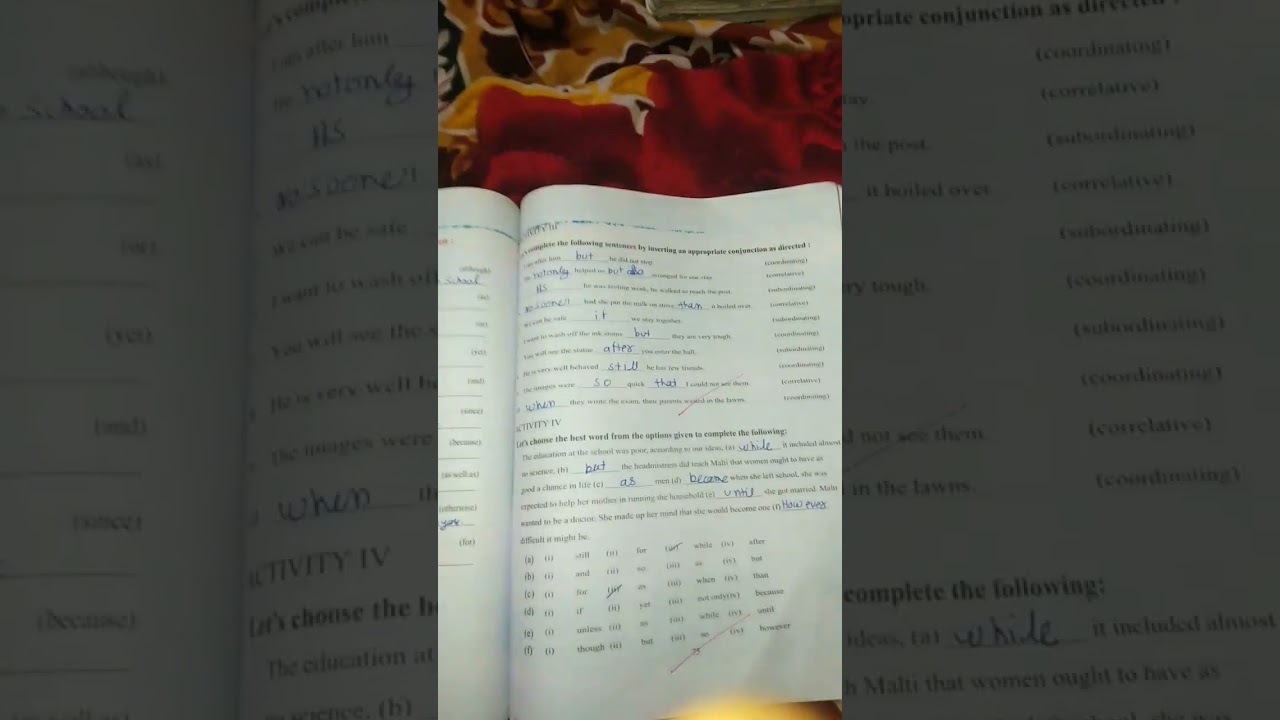 ACTIVITY III
complete the following sentences by inserting an appropriate conjunction as directed :
after him but he did not stop. (coordinating)
not only helped us but also arranged for our stay. (correlative)
As he was feeling weak, he walked to reach the post. (subordinating)
no sooner had she put the milk on stove than it boiled over. (correlative)
we can be safe it we stay together. (subordinating)
I want to wash off the ink stains but they are very tough. (coordinating)
You will see the statue after you enter the hall. (subordinating)
He is very well behaved still he has few friends. (coordinating)
The images were so quick that I could not see them. (correlative)
when they wrote the exam, their parents waited in the lawns. (coordinating)
ACTIVITY IV
Let's choose the best word from the options given to complete the following:
The education at the school was poor, according to our ideas, (a) while it included almost
no science, (b) but the headmistress did teach Malti that women ought to have as
good a chance in life (c) as men (d) became when she left school, she was
expected to help her mother in running the household (e) until she got married. Malti
wanted to be a doctor. She made up her mind that she would become one (f) However
difficult it might be.
(a) (i) still (ii) for (iii) while (iv) after
(b) (i) and (ii) so (iii) as (iv) but
(c) (i) for (ii) as (iii) when (iv) than
(d) (i) if (ii) yet (iii) not only (iv) because
(e) (i) unless (ii) as (iii) while (iv) until
(f) (i) though (ii) but (iii) so (iv) however
75
(as)
school
(or)
(yet)
(and)
(since)
(because)
(as well as)
(otherwise)
(for)